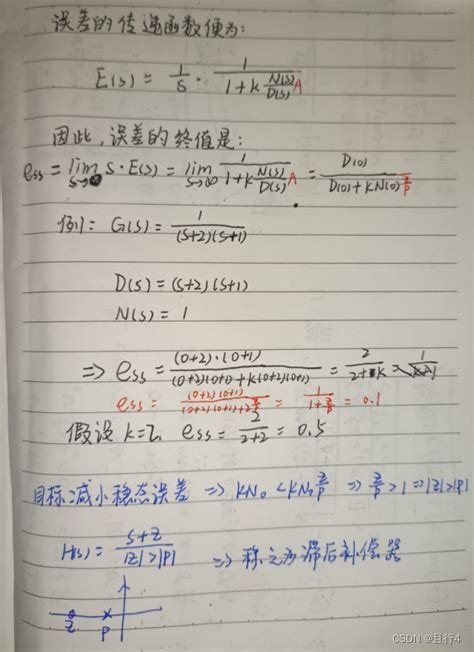 误差的传递函数便为:
E(s) = 1/s · 1/(1+k N(s)/D(s) A)
因此, 误差的终值是:
ess = lim s→0 s·E(s) = lim s→0 1/(1+k N(s)/D(s) A) = D(0)/(D(0)+kN(0) z/p)
例: G(s) = 1/((s+2)(s+1))
D(s) = (s+2)(s+1)
N(s) = 1
⇒ ess = (0+2)·(0+1)/((0+2)(0+1)+k(0+2)(0+1)) = 2/(2+k) =
ess = (0+2)(0+1)/((0+2)(0+1)+2 z/p) = 1/(1+z/p) = 0.1
假设 k=2, ess = 2/(2+2) = 0.5
目标: 减小稳态误差 ⇒ KN₀ < KN₀ z/p ⇒ z/p > 1 ⇒ |z|>|p|
H(s) = s+z/|z|>|p| ⇒ 称之为滞后补偿器
z p
CSDN @且行4